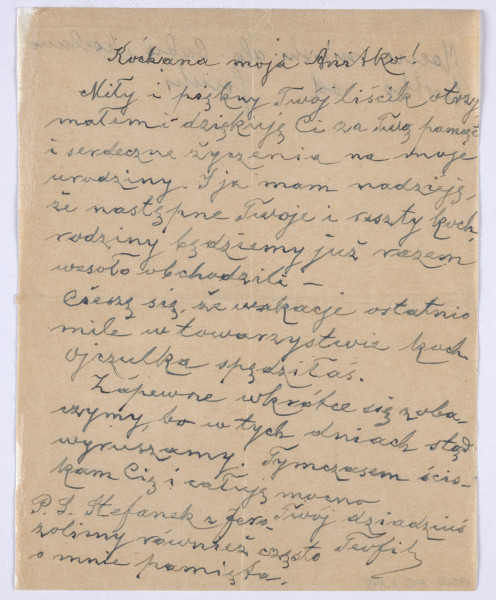 Kochana moja Anitko!
Miły i piękny Twój liścik otrzy
małem i dziękuję Ci za Twą pamięć
i serdeczne życzenia na moje
urodziny. I ja mam nadzieję,
że następne Twoje i reszty koch.
rodziny będziemy już razem
wesoło obchodzili –
Cieszę się, że wakacje ostatnio
mile w towarzystwie koch.
Ojczulka spędziłaś.
Zapewne wkrótce się zoba-
czymy, bo w tych dniach stąd
wyruszamy. Tymczasem ścis-
kam Cię i całuję mocno
Twój dziadziuś
Teofil
P.S. Stefanek z Jero
zolimy również często
o mnie pamięta.